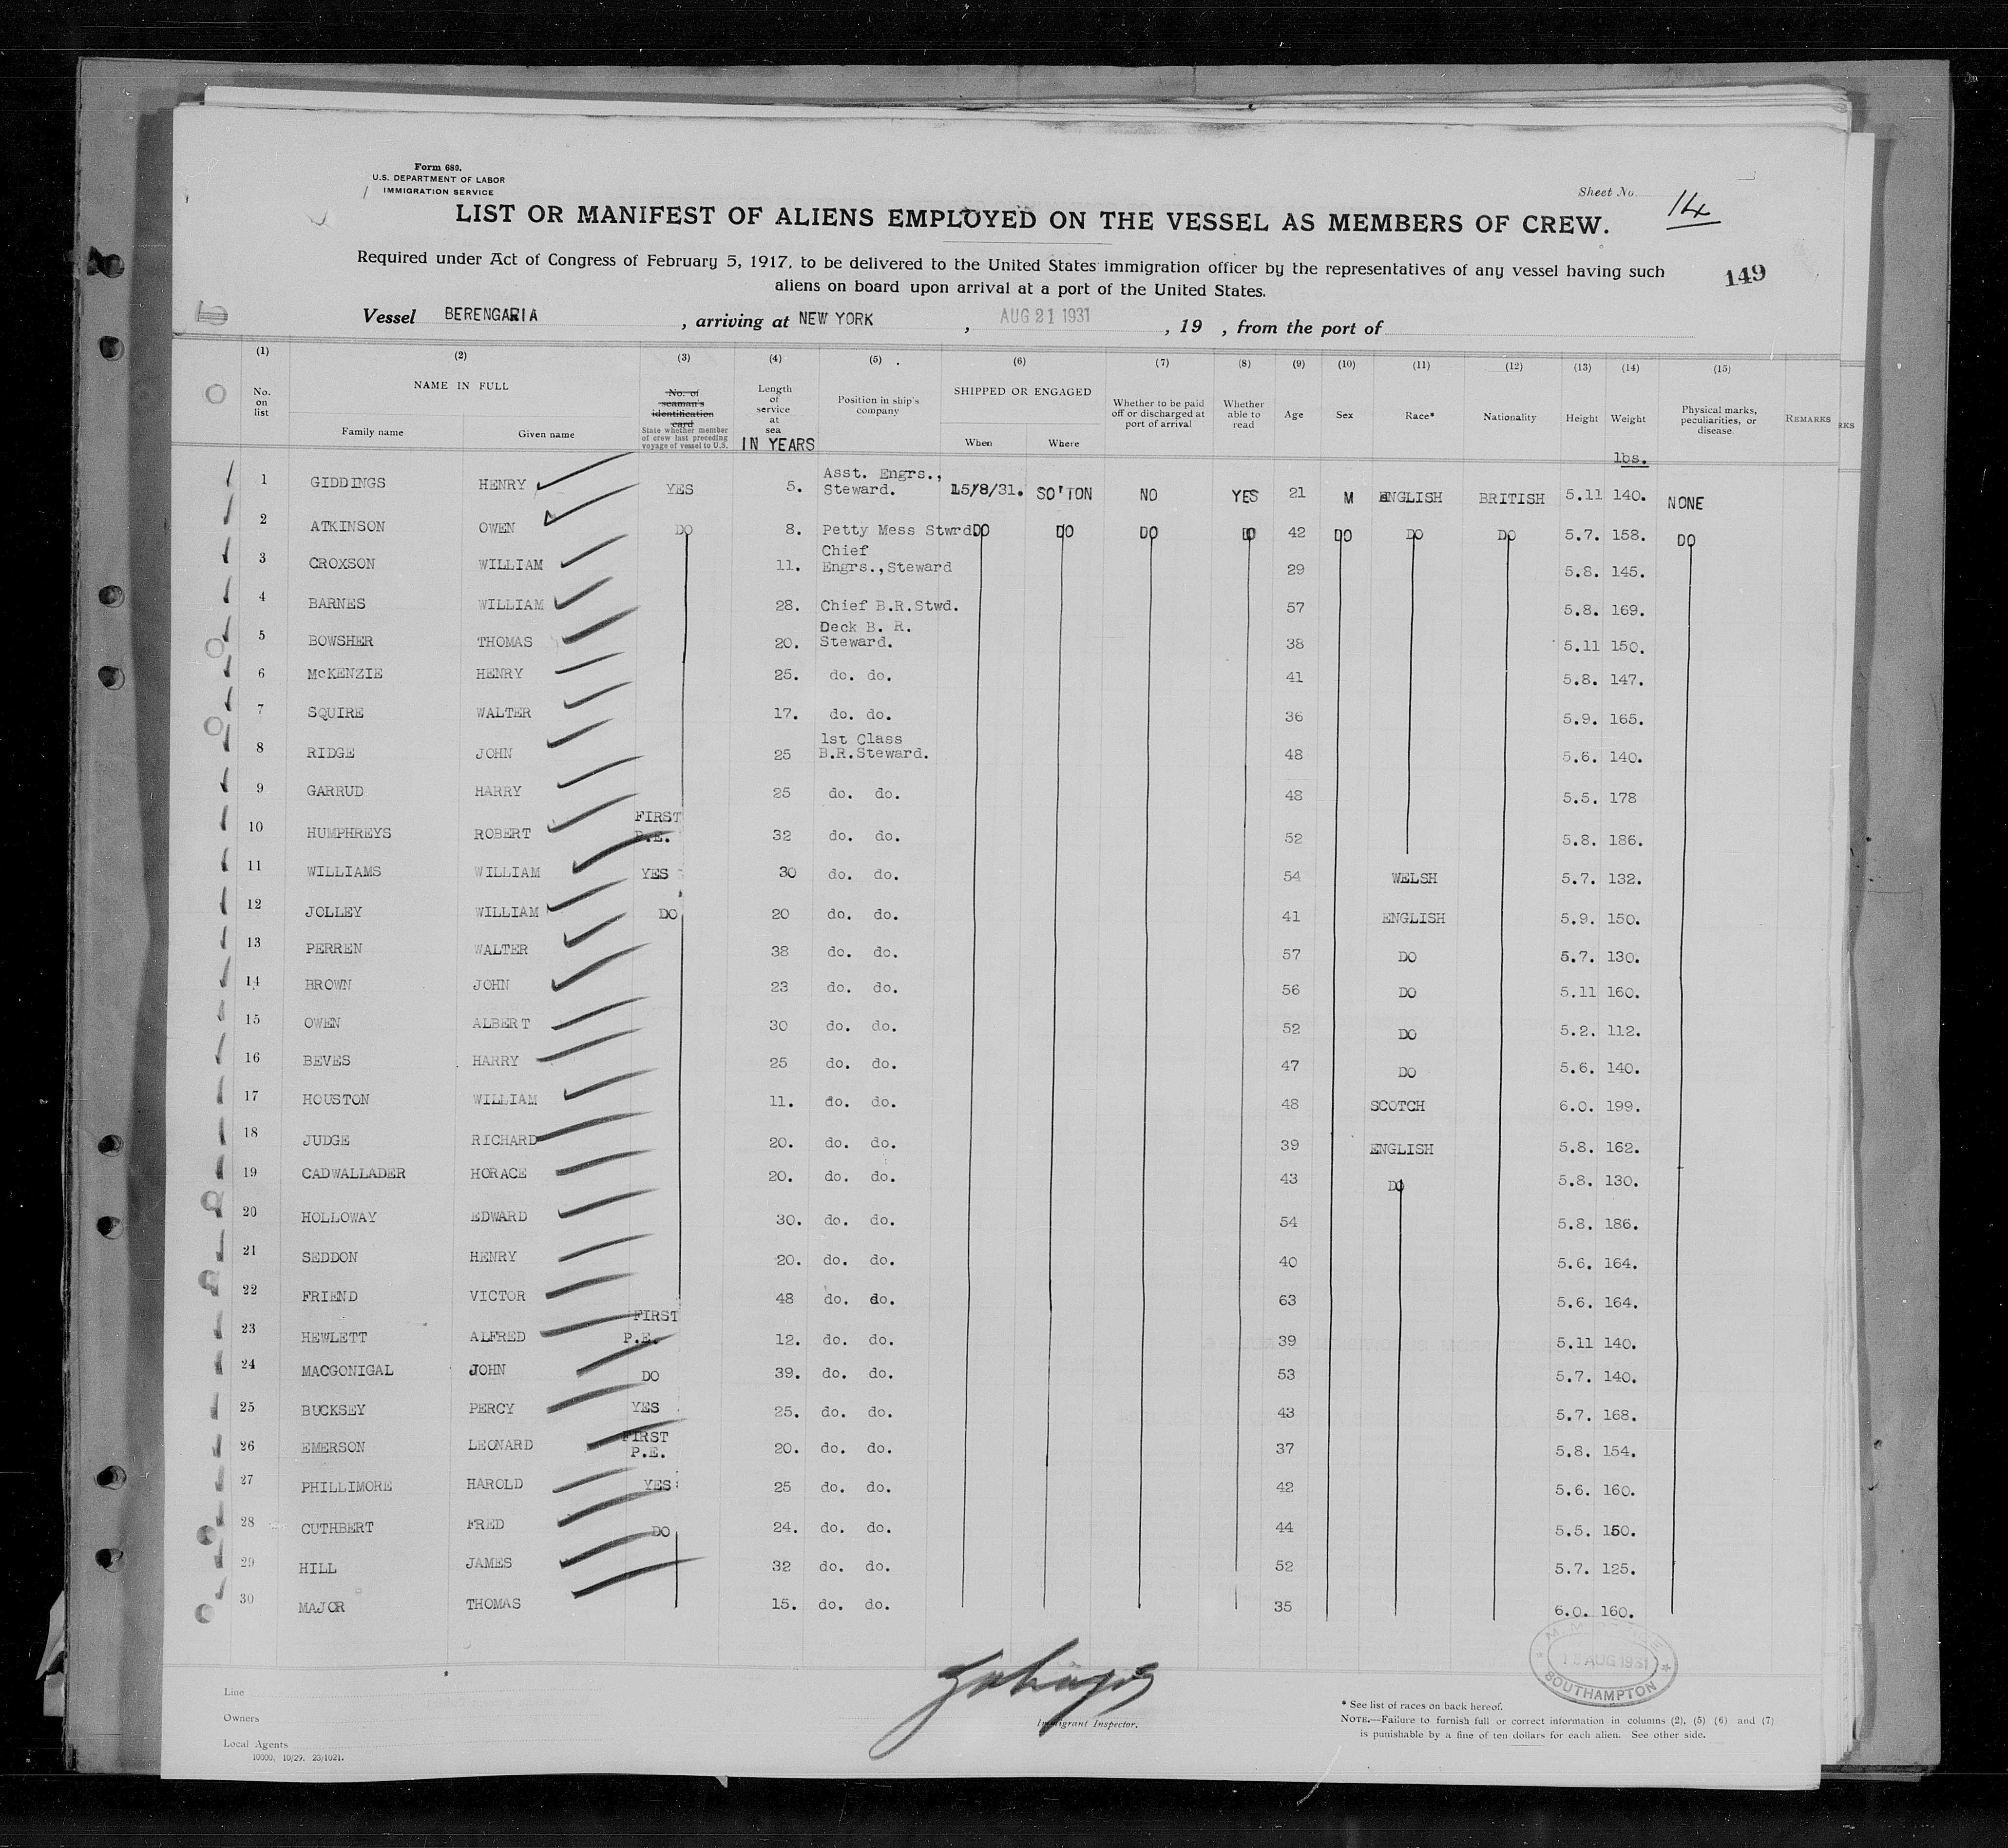 Form 680.
U.S. DEPARTMENT OF LABOR
IMMIGRATION SERVICE
Sheet No. 14
LIST OR MANIFEST OF ALIENS EMPLOYED ON THE VESSEL AS MEMBERS OF CREW.
Required under Act of Congress of February 5, 1917, to be delivered to the United States immigration officer by the representatives of any vessel having such
aliens on board upon arrival at a port of the United States.
149
Vessel BERENGARIA, arriving at NEW YORK, AUG 21 1931, 19 , from the port of
(1) (2) (3) (4) (5) (6) (7) (8) (9) (10) (11) (12) (13) (14) (15)
No. on list NAME IN FULL Family name Given name No. of seaman's identification card State whether member of crew last preceding voyage of vessel to U.S. Length of service at sea IN YEARS Position in ship's company SHIPPED OR ENGAGED When Where Whether to be paid off or discharged at port of arrival Whether able to read Age Sex Race* Nationality Height Weight lbs. Physical marks, peculiarities, or disease. REMARKS
RKS
1 GIDDINGS HENRY YES 5. Asst. Engrs., Steward. 15/8/31. SO'TON NO YES 21 M ENGLISH BRITISH 5.11 140. NONE
2 ATKINSON OWEN DO 8. Petty Mess Stwrd DO DO DO DO 42 DO DO DO 5.7. 158. DO
3 CROXSON WILLIAM 11. Chief Engrs.,Steward 29 5.8. 145.
4 BARNES WILLIAM 28. Chief B.R.Stwd. 57 5.8. 169.
5 BOWSHER THOMAS 20. Deck B. R. Steward. 38 5.11 150.
6 McKENZIE HENRY 25. do. do. 41 5.8. 147.
7 SQUIRE WALTER 17. do. do. 36 5.9. 165.
8 RIDGE JOHN 25 1st Class B.R.Steward. 48 5.6. 140.
9 GARRUD HARRY 25 do. do. 48 5.5. 178
10 HUMPHREYS ROBERT FIRST P.E. 32 do. do. 52 5.8. 186.
11 WILLIAMS WILLIAM YES 30 do. do. 54 WELSH 5.7. 132.
12 JOLLEY WILLIAM DO 20 do. do. 41 ENGLISH 5.9. 150.
13 PERREN WALTER 38 do. do. 57 DO 5.7. 130.
14 BROWN JOHN 23 do. do. 56 DO 5.11 160.
15 OWEN ALBERT 30 do. do. 52 DO 5.2. 112.
16 BEVES HARRY 25 do. do. 47 DO 5.6. 140.
17 HOUSTON WILLIAM 11. do. do. 48 SCOTCH 6.0. 199.
18 JUDGE RICHARD 20. do. do. 39 ENGLISH 5.8. 162.
19 CADWALLADER HORACE 20. do. do. 43 DO 5.8. 130.
20 HOLLOWAY EDWARD 30. do. do. 54 5.8. 186.
21 SEDDON HENRY 20. do. do. 40 5.6. 164.
22 FRIEND VICTOR 48 do. do. 63 5.6. 164.
23 HEWLETT ALFRED FIRST P.E. 12. do. do. 39 5.11 140.
24 MACGONIGAL JOHN DO 39. do. do. 53 5.7. 140.
25 BUCKSEY PERCY YES 25. do. do. 43 5.7. 168.
26 EMERSON LEONARD FIRST P.E. 20. do. do. 37 5.8. 154.
27 PHILLIMORE HAROLD YES 25 do. do. 42 5.6. 160.
28 CUTHBERT FRED DO 24. do. do. 44 5.5. 150.
29 HILL JAMES 32 do. do. 52 5.7. 125.
30 MAJOR THOMAS 15. do. do. 35 6.0. 160.
AUG 1931
SOUTHAMPTON
Line
Owners
Local Agents
10000. 10/29. 23/1021.
Immigrant Inspector.
* See list of races on back hereof.
NOTE.—Failure to furnish full or correct information in columns (2), (5) (6) and (7)
is punishable by a fine of ten dollars for each alien. See other side.